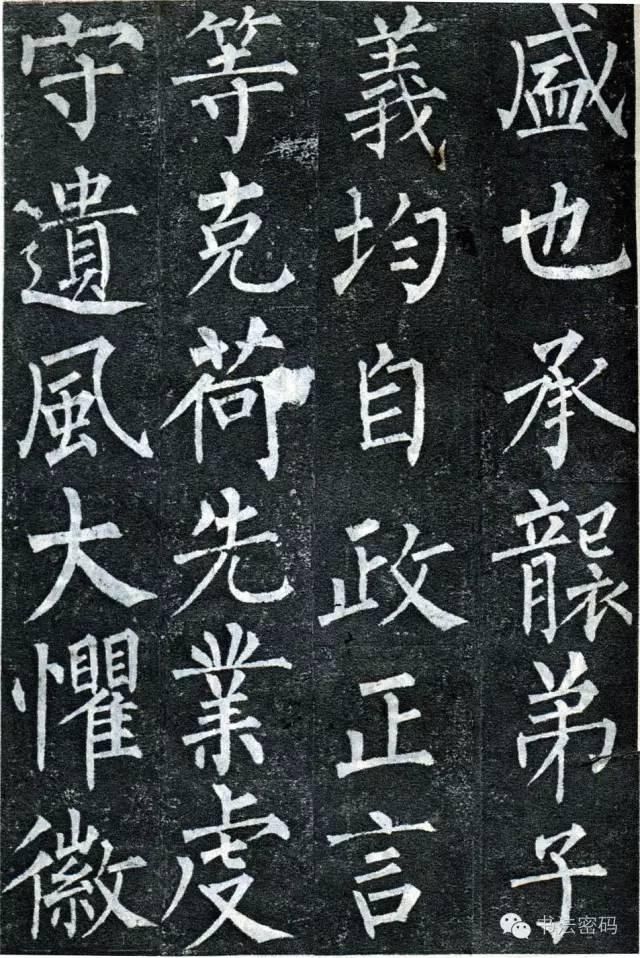 盛也承襲弟子
義均自政正言
等克荷先業虔
守遺風大懼徽
书法密码